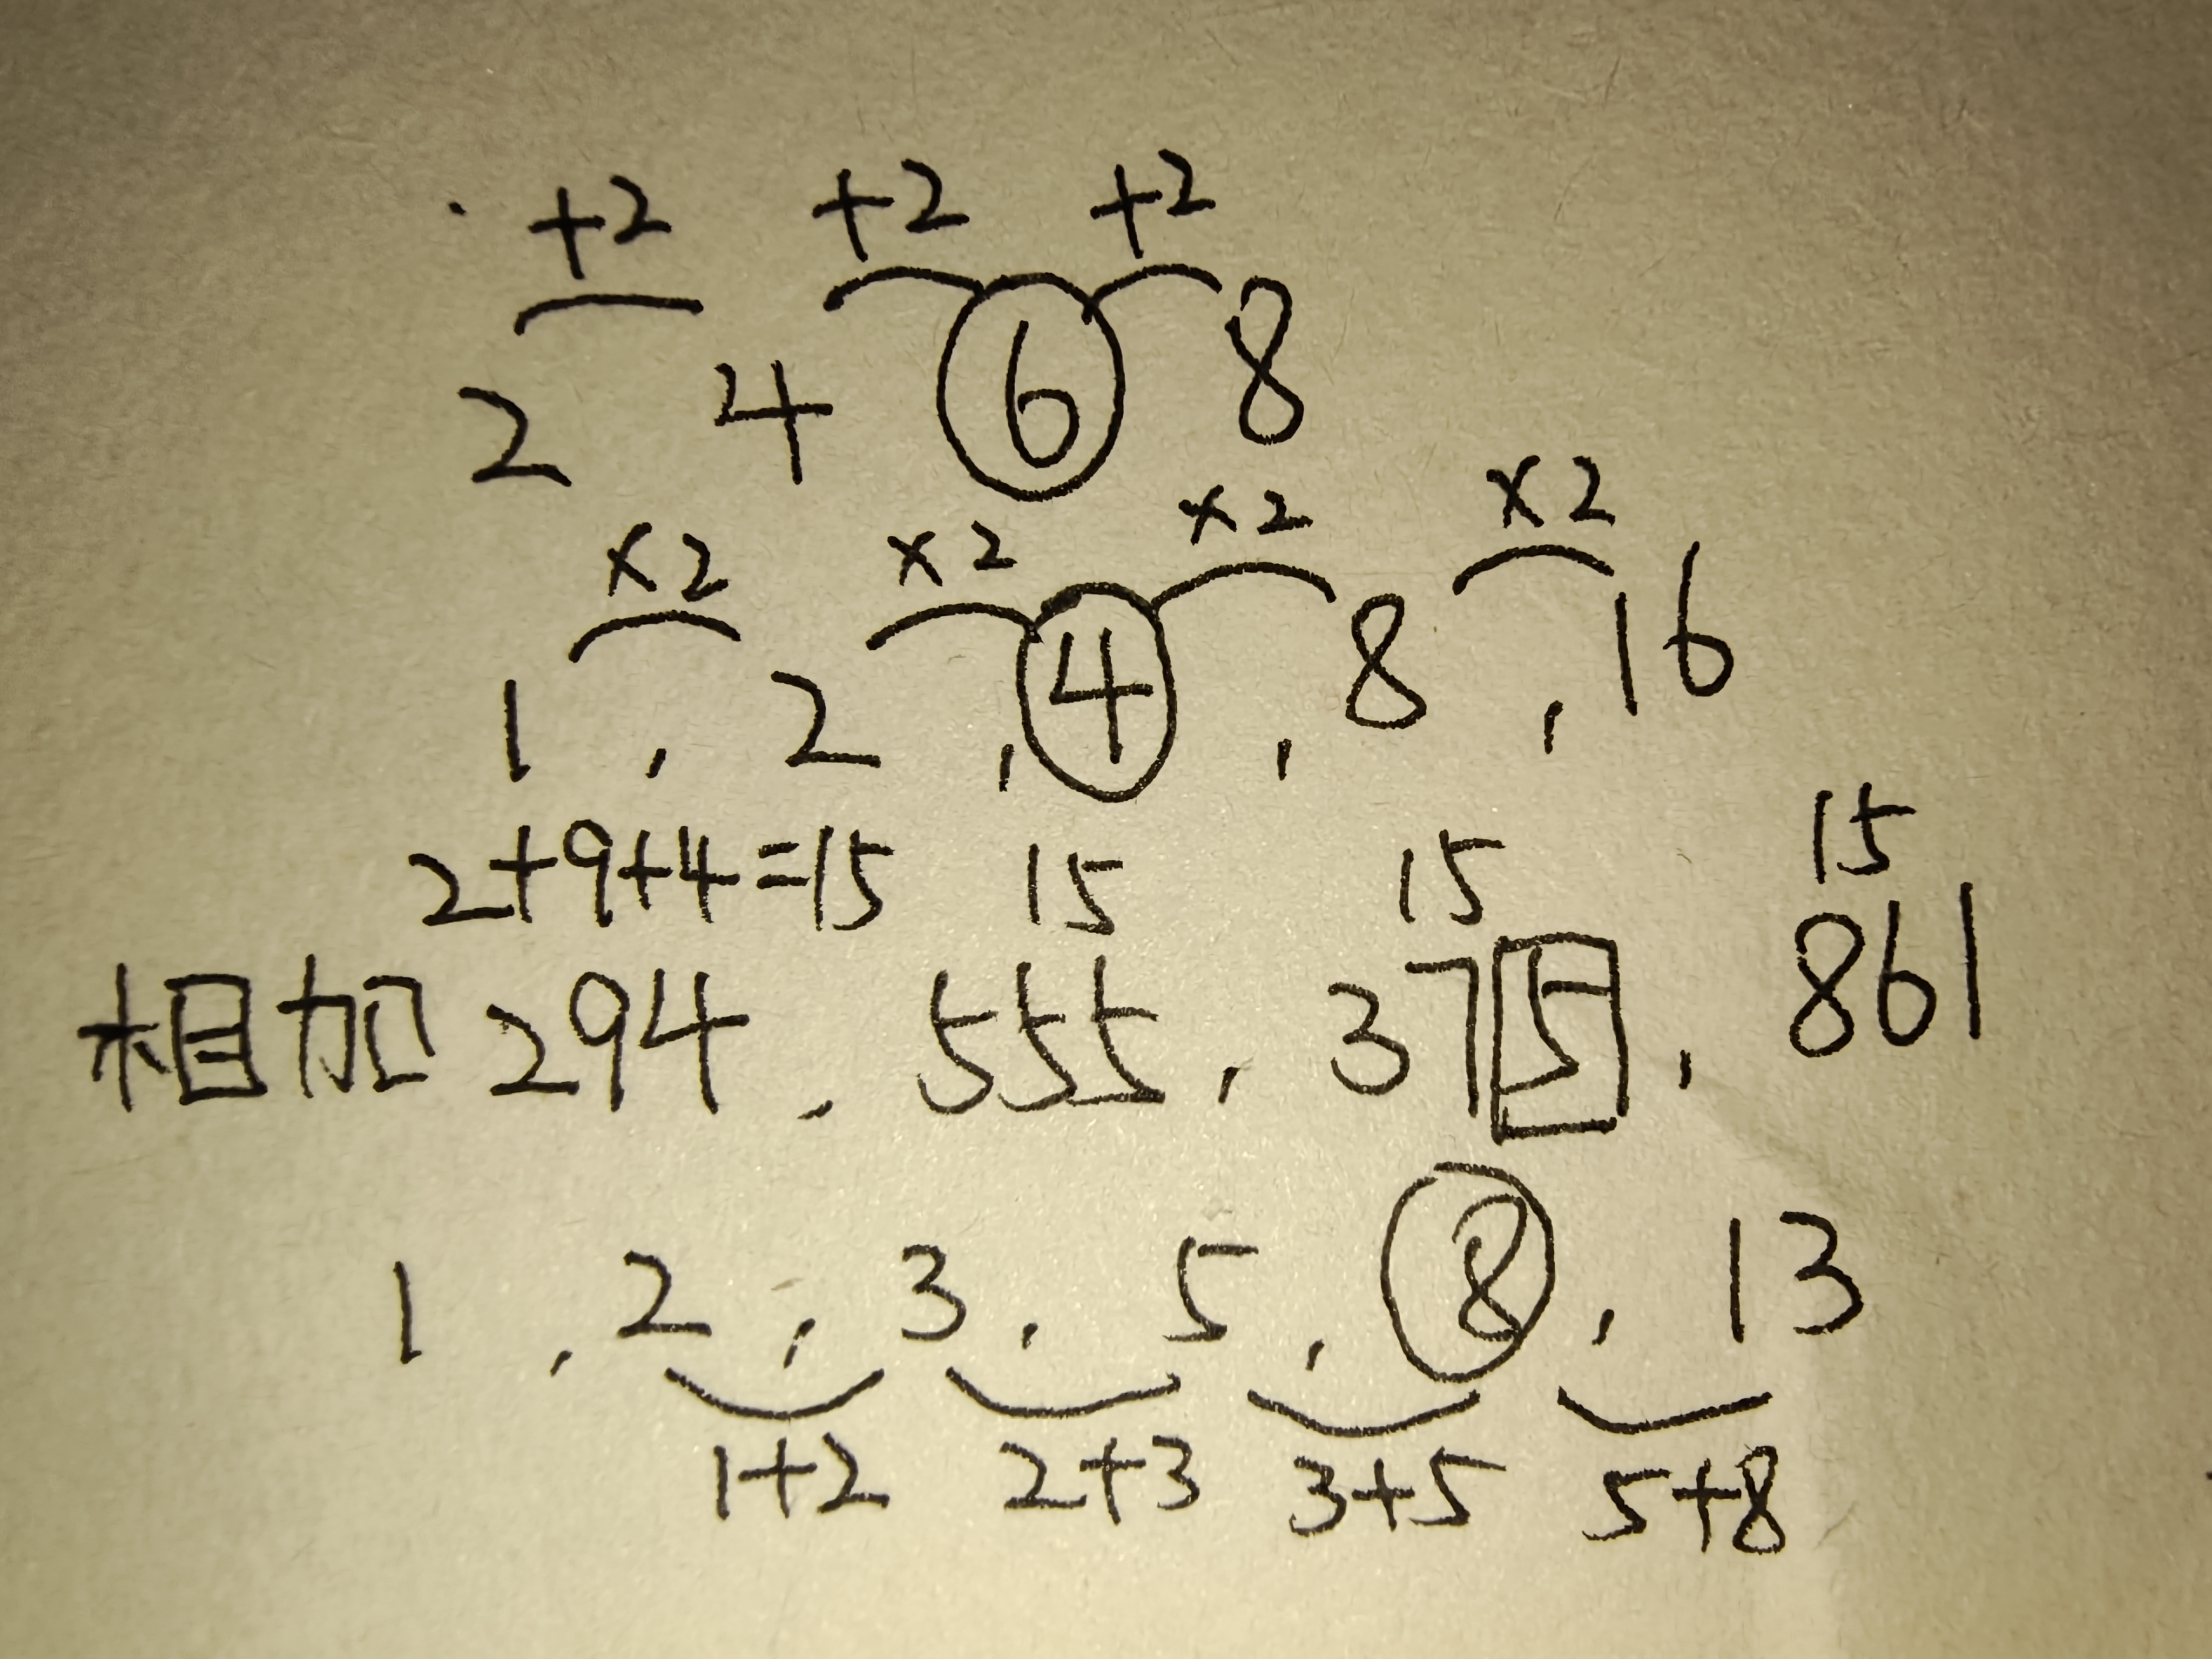 +2 +2 +2
2 4 6 8
×2 ×2 ×2 ×2
1 , 2 , 4 , 8 , 16
2+9+4=15 15 15 15
相加 294 , 555 , 375 , 861
1 , 2 , 3 , 5 , 8 , 13
1+2 2+3 3+5 5+8